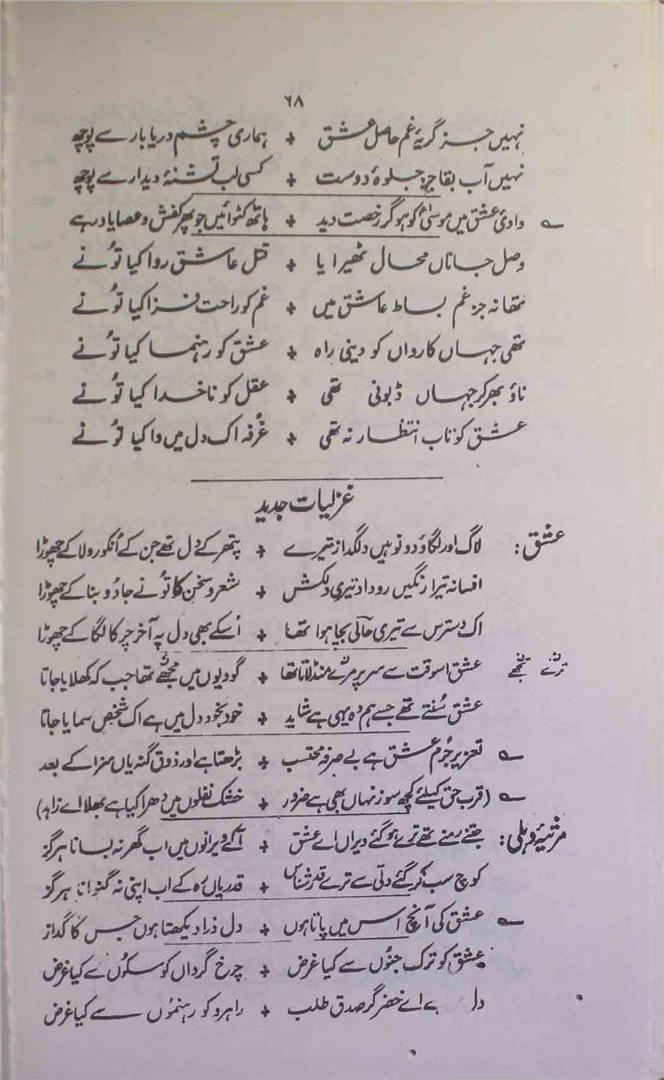 ۶۸
نہیں جز گریۂ غم حاصل عشق + ہماری چشم دریا بار سے پوچھ
نہیں آب بقا جز جلوۂ دوست + کسی لب تشنۂ دیدار سے پوچھ
؎ وادیٔ عشق میں موسیٰ کو ہو گر رخصت دید + ہاتھ کٹوائیں جو پھر کفش و عصا یاد رہے
وصل جاناں محال ٹھیرایا + قتل عاشق روا کیا توُ نے
تھا نہ جز غم بساط عاشق میں + غم کو راحت فزا کیا توُ نے
تھی جہاں کارواں کو دینی راہ + عشق کو رہنما کیا توُ نے
ناؤ بھر کر جہاں ڈبونی تھی + عقل کو ناخدا کیا توُ نے
عشق کو تاب انتظار نہ تھی + غُرفہ اک دل میں وا کیا توُ نے
غزلیات جدید
عشق: لاگ اور لگاؤ دونو ہیں دلگداز تیرے + پتھر کے دل تھے جن کے اُنکو رولا کے چھوڑا
افسانہ تیرا رنگیں روداد تیری دلکش + شعر و سخن کا توُ نے جادُو بنا کے چھوڑا
اک دسترس سے تیری حالی بچا ہوا تھا + اُسکے بھی دل پہ آخر چرکا لگا کے چھوڑا
عشق اسوقت سے سر پر مرے منڈلاتا تھا + گودیوں میں مجھے تھا جب کہ کھلایا جاتا
عشق سُنتے تھے جسے ہم وہ یہی ہے شاید + خود بخود دل میں ہے اک شخص سمایا جاتا
؎ تعزیر جُرم عشق ہے بے صرفہ محتسب + بڑھتا ہے اور ذوق گنہ یاں سزا کے بعد
؎ (قرب حق کیلئے کچھ سوز نہاں بھی ہے ضرور + خشک نفلوں میں دھرا کیا ہے بھلا اے زاہد)
مرثیۂ دہلی: جتنے رمنے تھے ترے ہو گئے ویراں اے عشق + آ کے ویرانوں میں اب گھر نہ بسانا ہرگز
کوچ سب کر گئے دلّی سے ترے قدر شناس + قدر یاں رہ کے اب اپنی نہ گنوانا ہرگز
؎ عشق کی آنچ اس میں پاتا ہوں + دل ذرا دیکھتا ہوں جس کا گداز
عشق کو ترک جنُوں سے کیا غرض + چرخ گرداں کو سکُوں سے کیا غرض
دل ہے اے خضر گر صدق طلب + راہرو کو رہنموں سے کیا غرض